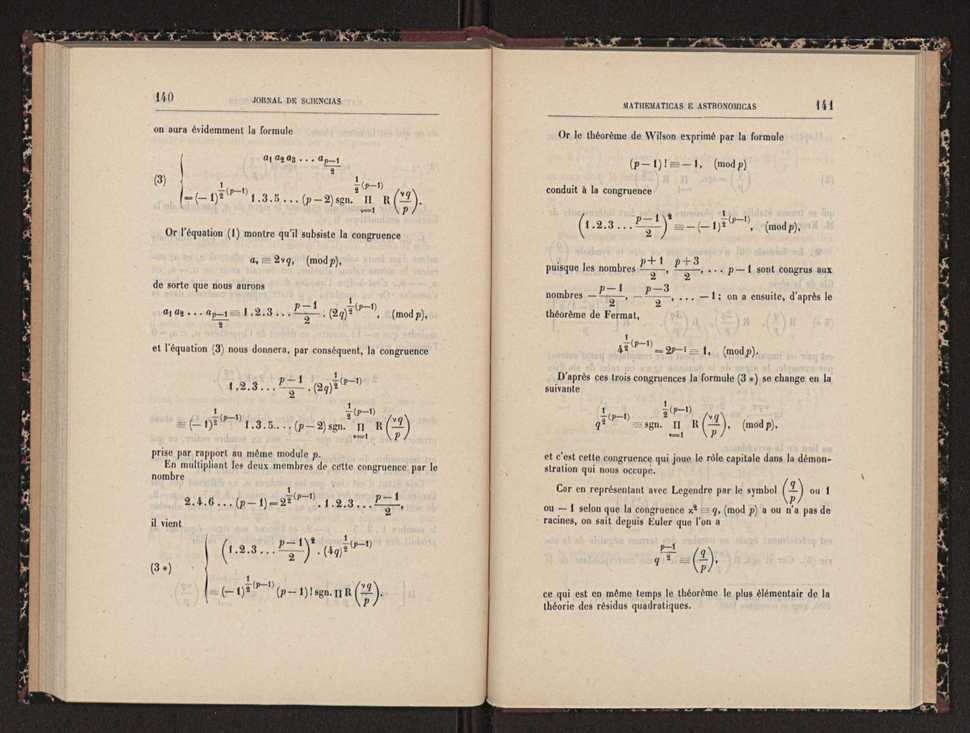 140 JORNAL DE SCIENCIAS
on aura évidemment la formule
(3) { a₁ a₂ a₃ ... a_{(p—1)/2}
= (— 1)^{½(p—1)} 1.3.5 ... (p — 2) sgn. Π_{ν=1}^{½(p—1)} R (νq/p).
Or l'équation (1) montre qu'il subsiste la congruence
aᵥ ≡ 2νq, (mod p),
de sorte que nous aurons
a₁ a₂ ... a_{(p—1)/2} ≡ 1.2.3 ... (p—1)/2 . (2q)^{½(p—1)}, (mod p),
et l'équation (3) nous donnera, par conséquent, la congruence
1.2.3 ... (p—1)/2 . (2q)^{½(p—1)}
≡ (— 1)^{½(p—1)} 1.3.5 ... (p — 2) sgn. Π_{ν=1}^{½(p—1)} R (νq/p)
prise par rapport au même module p.
En multipliant les deux membres de cette congruence par le
nombre
2.4.6 ... (p — 1) = 2^{½(p—1)} . 1.2.3 ... (p—1)/2,
il vient
(3 *) { (1.2.3 ... (p—1)/2)² . (4q)^{½(p—1)}
≡ (— 1)^{½(p—1)} (p — 1) ! sgn. Π R (νq/p).
MATHEMATICAS E ASTRONOMICAS 141
Or le théorème de Wilson exprimé par la formule
(p — 1) ! ≡ — 1, (mod p)
conduit à la congruence
(1.2.3 ... (p—1)/2)² ≡ — (— 1)^{½(p—1)}, (mod p),
puisque les nombres (p+1)/2, (p+3)/2, ... p — 1 sont congrus aux
nombres — (p—1)/2, — (p—3)/2, ... — 1 ; on a ensuite, d'après le
théorème de Fermat,
4^{½(p—1)} = 2^{p—1} ≡ 1, (mod p).
D'après ces trois congruences la formule (3 *) se change en la
suivante
q^{½(p—1)} ≡ sgn. Π_{ν=1}^{½(p—1)} R (νq/p), (mod p),
et c'est cette congruence qui joue le rôle capitale dans la démon-
stration qui nous occupe.
Car en représentant avec Legendre par le symbol (q/p) ou 1
ou — 1 selon que la congruence x² ≡ q, (mod p) a ou n'a pas de
racines, on sait depuis Euler que l'on a
q^{(p—1)/2} ≡ (q/p),
ce qui est en même temps le théorème le plus élémentair de la
théorie des résidus quadratiques.